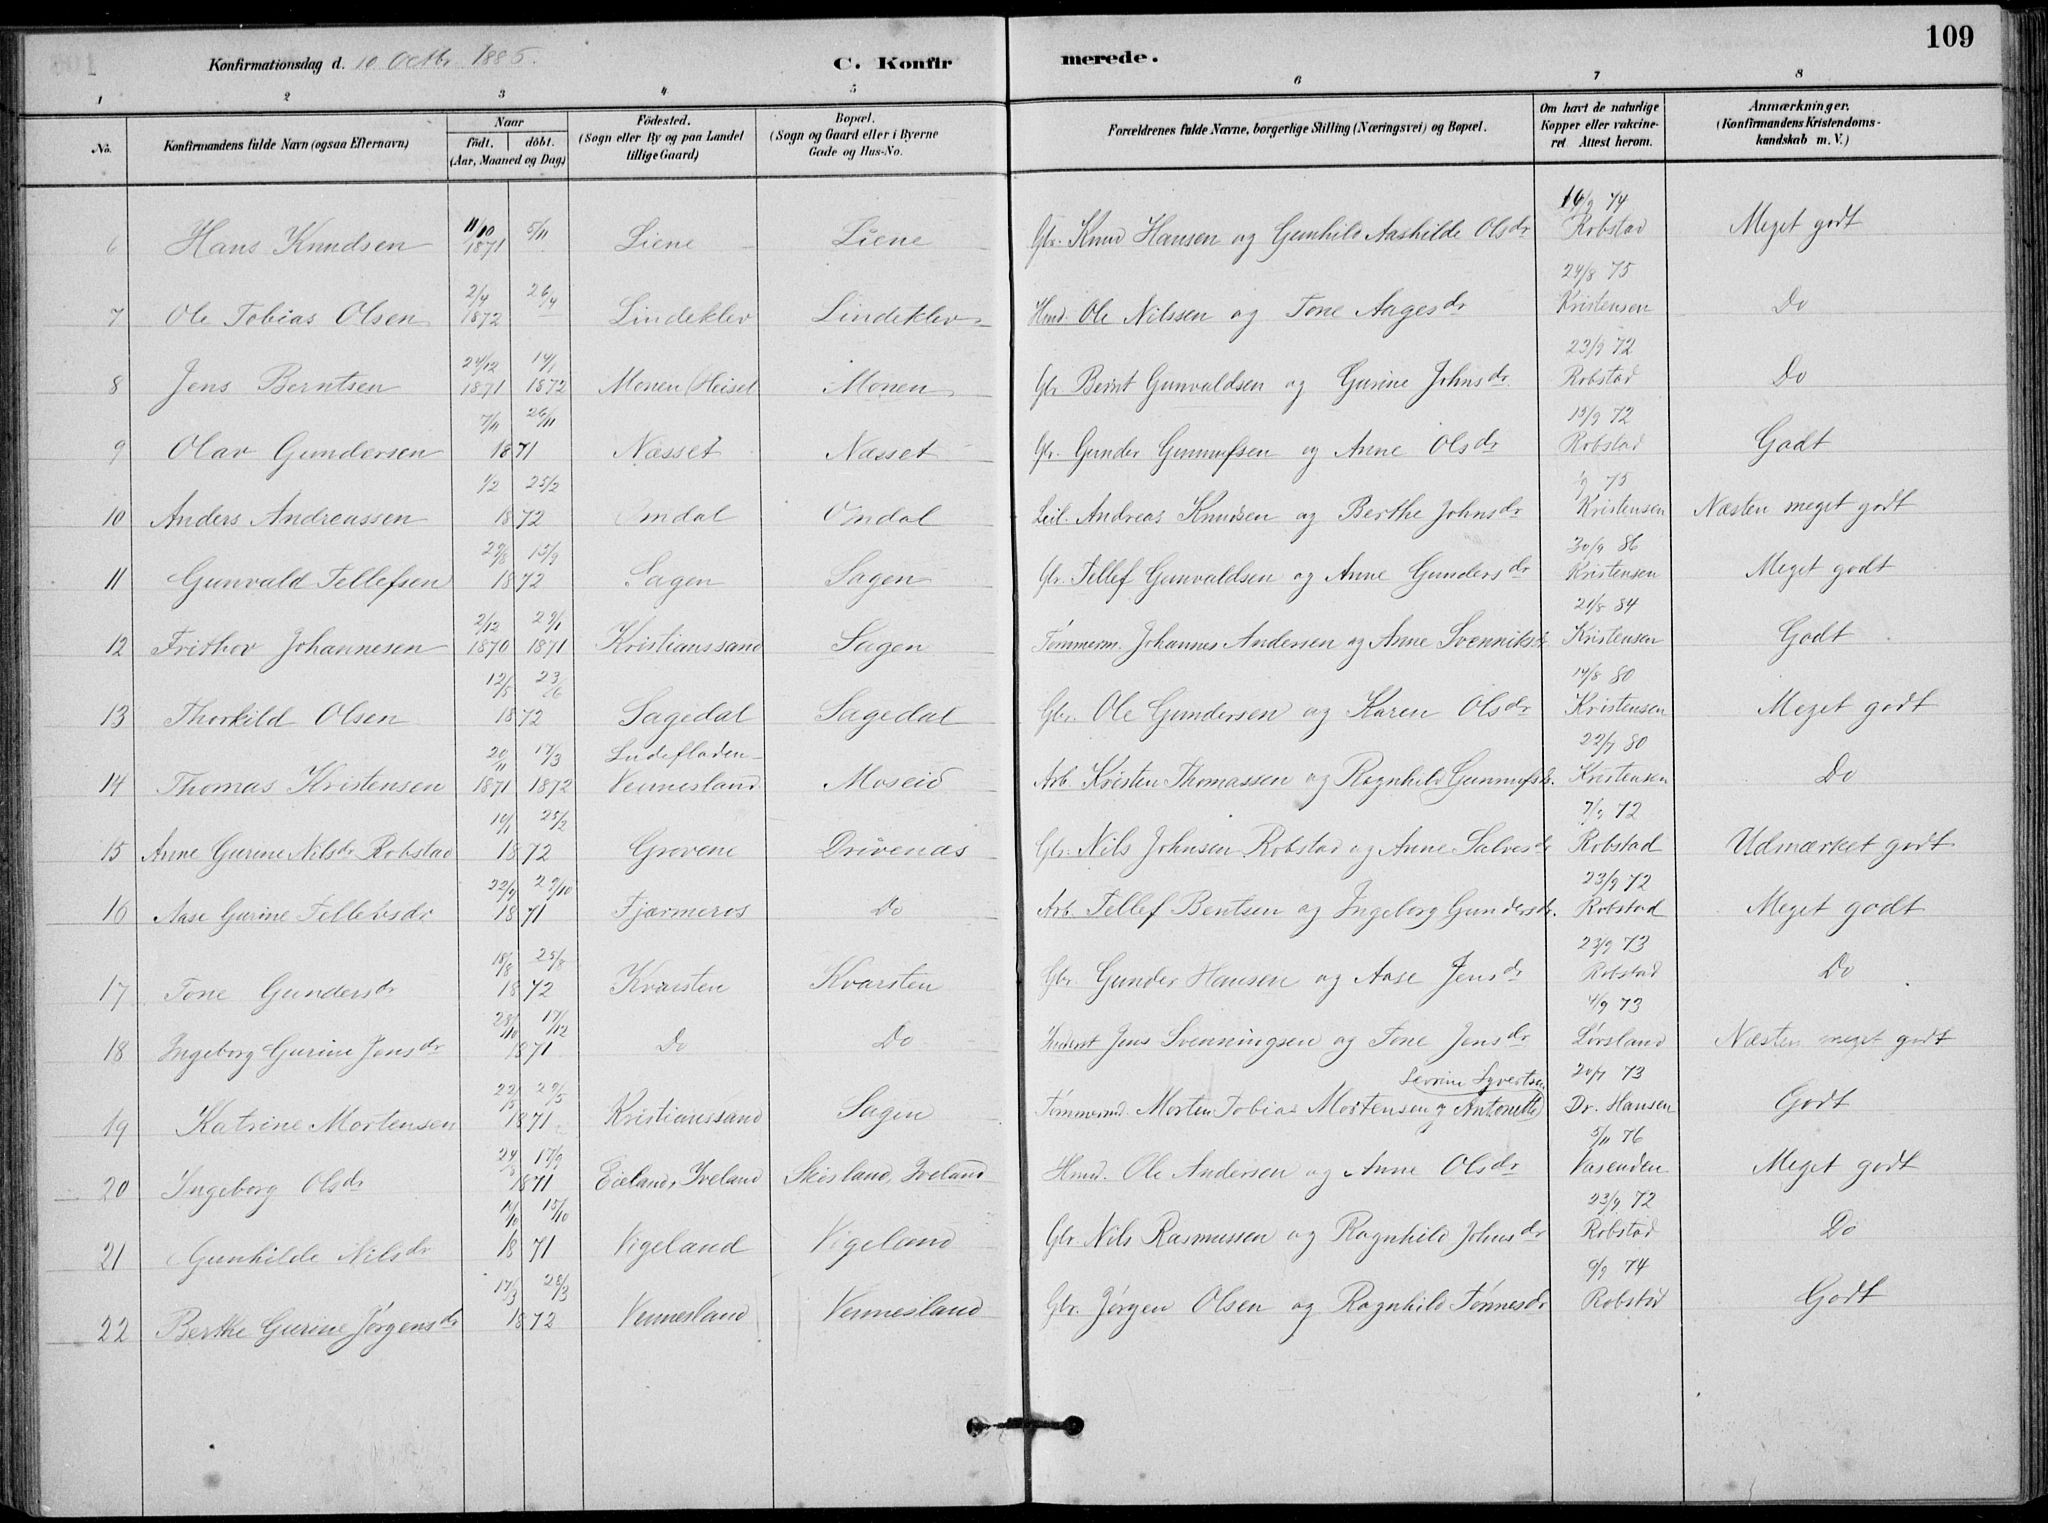 109
Konfirmationsdag d. 10 Octbr. 1886.
C. Konfirmerede.
1 2 3 4 5 6 7 8
No. Konfirmandens fulde Navn (ogsaa Efternavn) Naar født. døbt. (Aar, Maaned og Dag) Fødested. (Sogn eller By og paa Landet tillige Gaard) Bopæl. (Sogn og Gaard eller i Byerne Gade og Hus-No. Forældrenes fulde Navne, borgerlige Stilling (Næringsvei) og Bopæl. Om havt de naturlige Kopper eller vakcineret Attest herom. Anmærkninger. (Konfirmandens Kristendomskundskab m. V.)
6 Hans Knudsen 11/10 1871 5/11 Liene Liene Gbr. Knud Hansen og Gunhild Aashilde Olsdr 16/9 74 Robstad Meget godt
7 Ole Tobias Olsen 2/4 1872 26/4 Lindeklev Lindeklev Hmd. Ole Nilssen og Tone Aagesdr 24/8 75 Kristensen Do
8 Jens Berntsen 24/12 1871 14/1 1872 Monen (Heisel Monen Gbr Bernt Gunvaldsen og Gurine Johnsdr 23/9 72 Robstad Do
9 Olav Gundersen 7/11 26/11 1871 Næsset Næsset Gbr. Gunder Gunnufsen og Anne Olsdr 19/9 72 Robstad Godt
10 Anders Andreassen 1/2 25/2 1872 Omdal Omdal Leil. Andreas Knudsen og Berthe Johnsdr 75 Kristensen Næsten meget godt
11 Gunvald Tellefsen 29/8 15/9 1872 Sagen Sagen Gbr. Tellef Gunvaldsen og Anne Gundersdr 30/9 86 Kristensen Meget godt
12 Frithov Johannesen 2/12 1870 29/1 1871 Kristianssand Sagen Tømmerm. Johannes Andersen og Anne Svenniksdr 21/8 84 Kristensen Godt
13 Thorkild Olsen 12/5 23/6 1872 Sagedal Sagedal Gbr. Ole Gundersen og Karen Olsdr 14/8 80 Kristensen Meget godt
14 Thomas Kristensen 20/11 1871 17/3 1872 Lindefladen Vennesland Moseid Arb. Kristen Thomassen og Ragnhild Gunnufsdr. 22/7 80 Kristensen Do
15 Anne Gurine Nilsdr Robstad 19/1 25/2 1872 Grovene Drivenæs Gbr. Nils Johnsen Robstad og Anne Salvesdr 7/9 72 Robstad Udmærket godt
16 Aase Gurine Tellefsdr 22/9 29/10 1871 Fjærmeros Do Arb. Tellef Bentsen og Ingeborg Gundersdr. 23/9 72 Robstad Meget godt
17 Tone Gundersdr 18/8 25/8 1872 Kvarsten Kvarsten Gbr Gunder Hansen og Aase Jensdr 23/9 73 Robstad Do
18 Ingeborg Gurine Jensdr 28/10 17/12 1871 Do Do Jens Svenningsen og Tone Jensdr 4/9 73 Lørsland Næsten meget godt
19 Katrine Mortensen 22/5 29/5 1871 Kristianssand Sagen Tømmermd. Morten Tobias Mortensen og Antonette Sevrine Syvertsen 20/7 73 Dr. Hansen Godt
20 Ingeborg Olsdr 24/8 17/9 1871 Eieland, Iveland Skisland, Iveland Hmd. Ole Andersen og Anne Olsdr 5/11 76 Vasenden Meget godt
21 Gunhilde Nilsdr 15/10 1871 Vigeland Vigeland Gbr. Nils Rasmussen og Ragnhild Johnsdr 23/9 72 Robstad Do
22 Berthe Gurine Jørgensdr 17/3 28/3 1872 Vennesland Vennesland Gbr. Jørgen Olsen og Ragnhild Tønnesdr 9/9 74 Robstad Godt